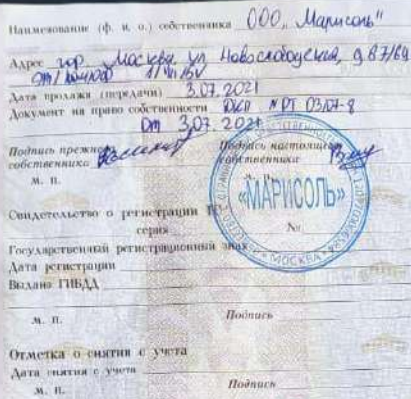 Наименование (ф. и. о.) собственника ООО „Марисоль"
Адрес гор. Москва ул Новослободская, д 67/69
Дата продажи (передачи) 3.07.2021
Документ на право собственности ДКП №РТ 03/07-8
от 3.07.2021
Подпись прежнего собственника
Подпись настоящего собственника
М. П.
«МАРИСОЛЬ»
МОСКВА
Свидетельство о регистрации ТС
серия №
Государственный регистрационный знак
Дата регистрации
Выдано ГИБДД
М. П. Подпись
Отметка о снятии с учета
Дата снятия с учета
М. П. Подпись